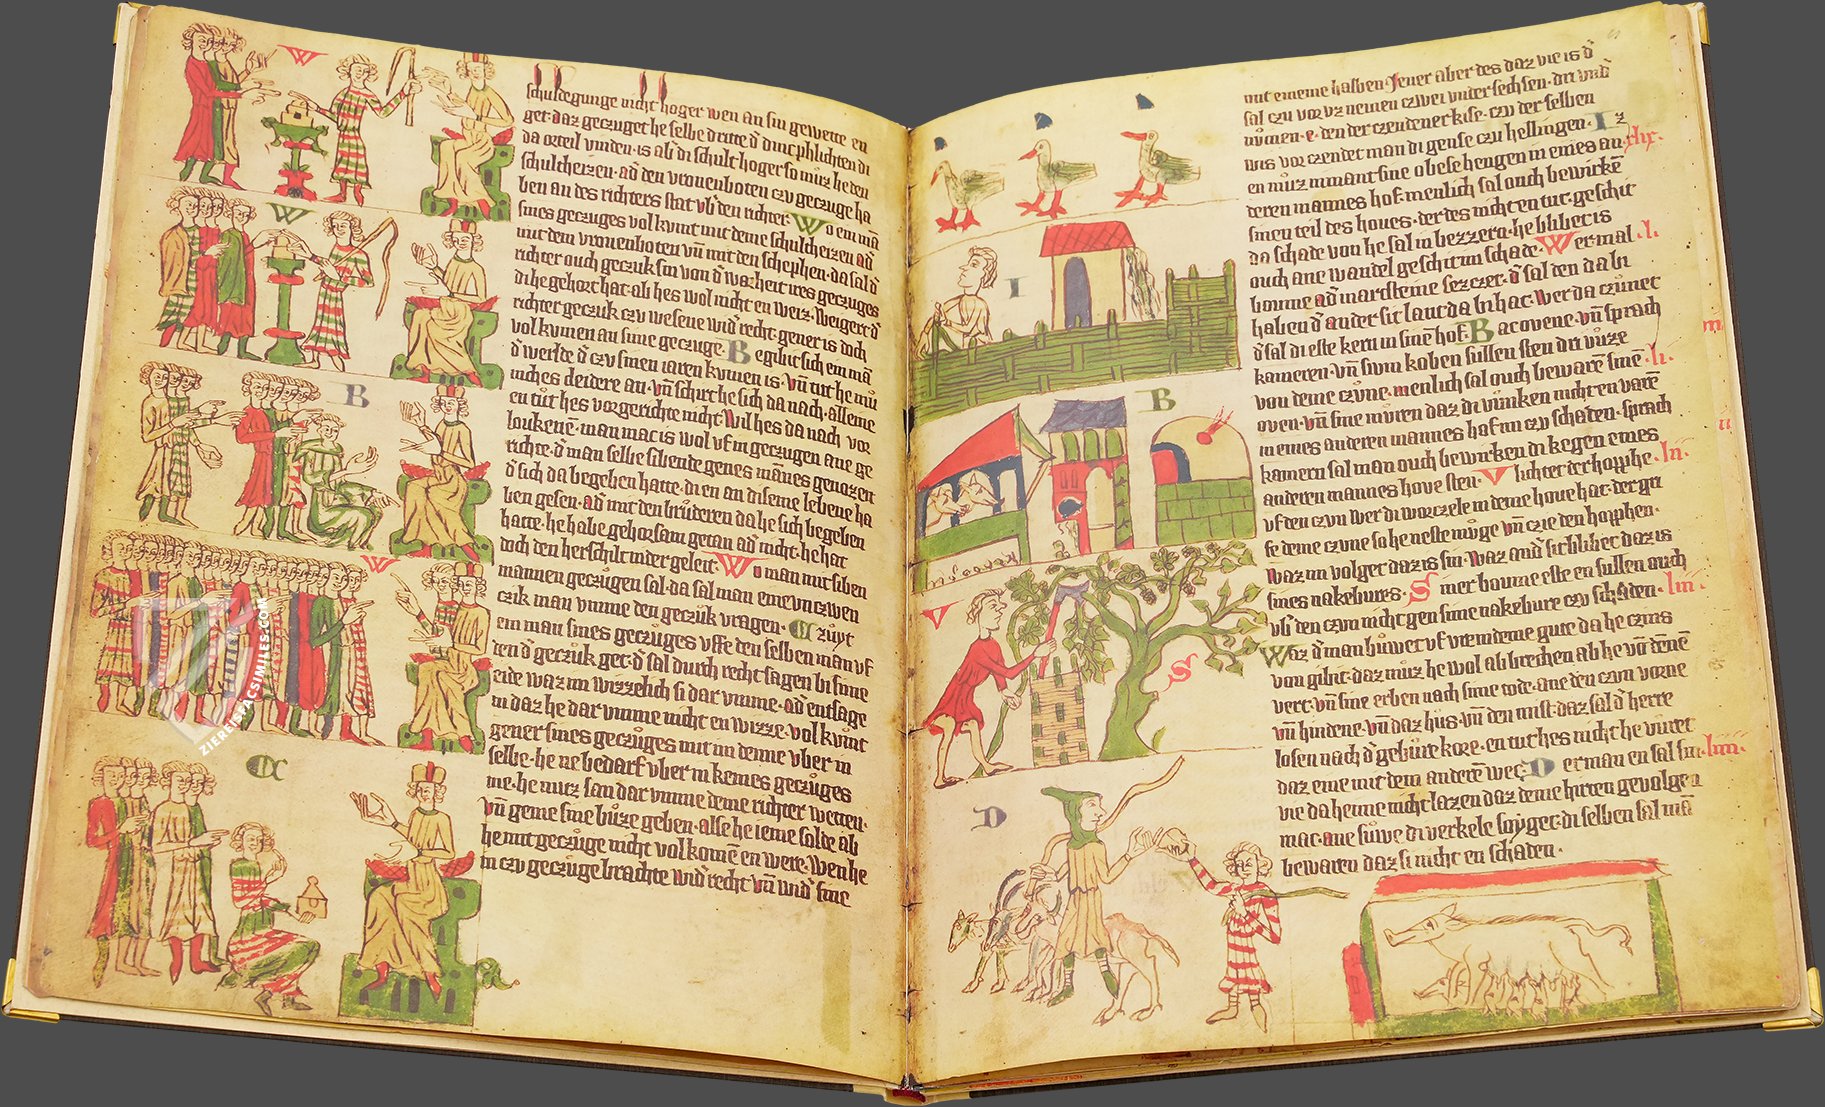 schuldegunge nicht hoger wen an sin gewette en
get· daz geczuget he selbe dritte d dincphlichten di
da orteil vinden· is ab di schult hoger so muz he den
schulcheizen· ad den vronenboten czu geczuge ha
ben an des richters stat vb den richter· Wo em ma
sines geczuges vol kumt mit deme schulcheizen ad
mit dem vronenboten vn mit den schephen· da sal d
richter ouch geczuk sin von d warheit ires geczuges
di he gehort hat· ab hes wol nicht en weiz· Weigert d
richter geczuk czu wesene wid recht· gener is doch
vol kumen an sime geczuge· Begibit sich em man
d werlde d czu sinen iaren kumen is· vn tut he mu
nches cleidere an· vn schirt he sich da nach· alleine
en tut hes vorgerichte nicht· Wil hes da nach vor
loukene· man mac is wol vf in geczugen ane ge
richte· d man selbe sibende genes mannes genozen
d sich da begeben hatte· di en an diseme lebene ha
ben gesen· ad mit den bruderen da he sich begeben
hatte· he habe gehorsam getan ad nicht· he hat
doch den herschilt nider geleit· Wo man mit siben
mannen geczugen sal· da sal man eine vn czwen
czik man vmme den geczuk vragen· Czuyt
em man sines geczuges vffe den selben man vf
den d geczuk get· d sal durch recht sagen bi sime
eide waz im wizzelich si dar vmme· ad entsage
in daz he dar vmme nicht en wizze· vol kumt
gener sines geczuges mit im denne vber in
selbe· he ne bedarf vber in keines geczuges
me· he muz san dar vmme deme richter wetten·
vn geme sine buze geben· alse he ieme solde ab
he mit geczuge nicht vol kome en were· Wen he
in czu geczuge brachte wid recht vn wid sine
W
W
B
W
C
ZIEREIS FACSIMILES.COM
mit em eme halben· Jener aber des daz vie is d
sal czu vor uz nemen czwei vnder sechsen· dri vnd
numen· e· den der czendener kise· czu der selben
wis vor czendet man di gense czu hellingen· Iz
en muz nimant sine obese hengen in eines an
deren mannes hof· menlich sal ouch bewirke
sinen teil des houes· der des nicht en tut· geschit
da schade von he sal in bezzern· he blibet is
ouch ane wandel geschit im schade· Wer mal
boume ad marsteine sezczet· d sal den da bi
haben d ander sit lant da bi hat· Wer da czunet
d sal di este kern in sine hof· Bacovene· vn sprach
kameren· vn swin koben sullen sten dri vuze
von deme czune· menlich sal ouch beware sine
oven· vn sine muren daz di vunken nicht en vare
in eines anderen mannes hof im czu schaden· sprach
kamern sal man ouch bewirken di kegen eines
anderen mannes hove sten· Vlichter der hopphe
vf den czun wer di worczele in deme hove hat· der gri
fe deme czune so he neste muge vn czie den hopphen·
waz im volget daz is sin· waz and sit blibet daz is
sines nakebures· Siner boume este en sullen ouch
vb den czun nicht gen sime nakebure czu schaden·
Waz d man buwet vf vremdeme gute da he czins
von gibit· daz muz he wol ab brechen ab he von denne
vert· vn sine erben nach sime tode· ane den czun vorne
vn hindene· vn daz hus· vn den mist· daz sal d herre
losen nach d gebure kore· en tut hes nicht he vuret
daz eine mit dem andere wec· Der man en sal sin
vie da heime nicht lazen daz deme hirten gevolgen
mac· ane suwe di verkele soyget· di selben sal ma
bewaren daz si nicht en schaden·
I
B
V
S
D